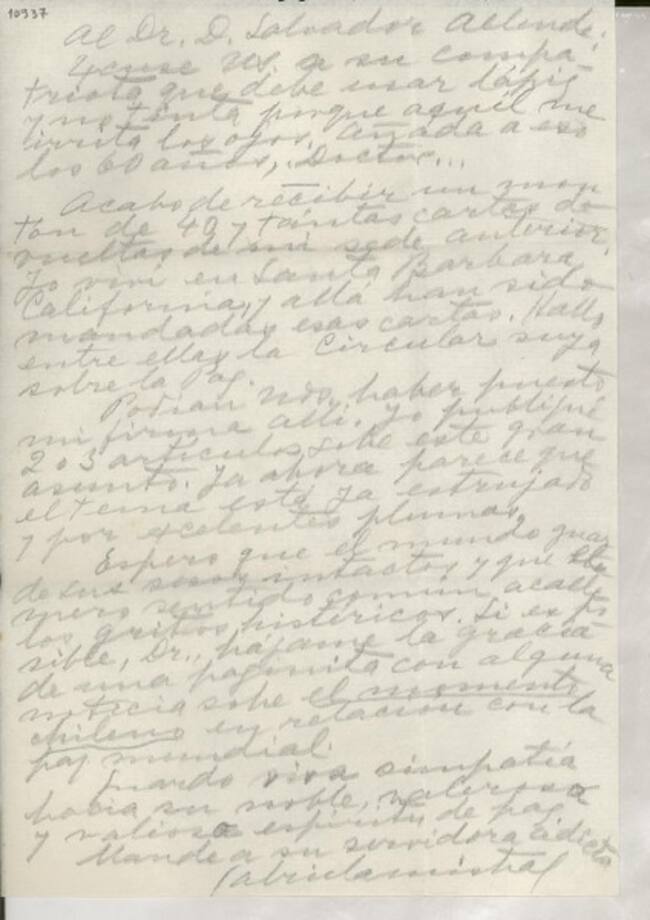 10937
Al Dr. D. Salvador Allende:
Excuse Us. a su compa-
triota que debe usar lápiz
y no tinta porque aquél me
irrita los ojos. Añada a eso
los 60 años, Doctor...
Acabo de recibir un mon
tón de 40 y tántas cartas de
vueltas de mi sede anterior.
Yo viví en Santa Barbara
California, y allá han sido
mandadas esas cartas. Hallo
entre ellas la Circular suya
sobre la Paz.
Podían Uds. haber puesto
mi firma allí. Yo publiqué
2 o 3 artículos sobe este gran
asunto. Ya ahora parece que
el tema está ya estrujado
y por excelentes plumas.
Espero que el mundo guar
de sus sesos intactos y que el
mero sentido común acalle
los gritos histéricos. Si es po
sible, Dr., hájame la gracia
de una paginita con alguna
noticia sobe el momento
chileno en relación con la
paz mundial.
Guardo viva simpatía
hacia su noble, valeroso
y valioso espíritu de paz.
Mande a su servidora adicta
Gabriela Mistral